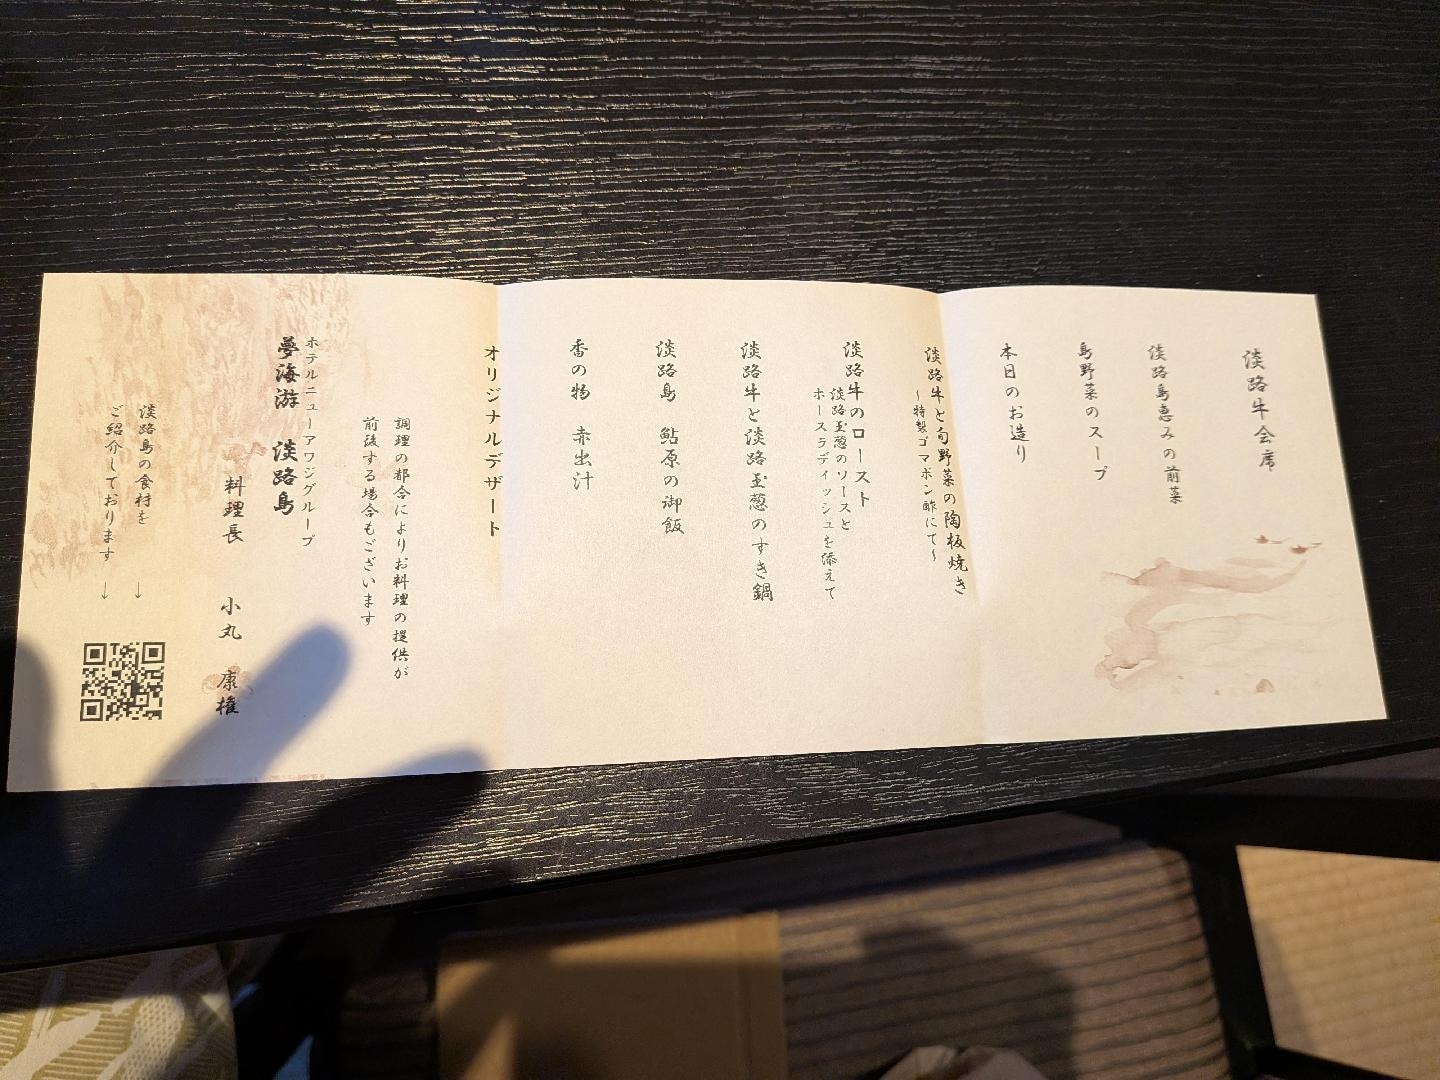 淡路牛会席
淡路島恵みの前菜
島野菜のスープ
本日のお造り
淡路牛と旬野菜の陶板焼き
～特製ゴマポン酢にて～
淡路牛のロースト
淡路玉葱のソースと
ホースラディッシュを添えて
淡路牛と淡路玉葱のすき鍋
淡路島　鮎原の御飯
香の物　赤出汁
オリジナルデザート
調理の都合によりお料理の提供が
前後する場合もございます
ホテルニューアワジグループ
夢海游　淡路島
料理長　小丸　康権
淡路島の食材を　→
ご紹介しております　→